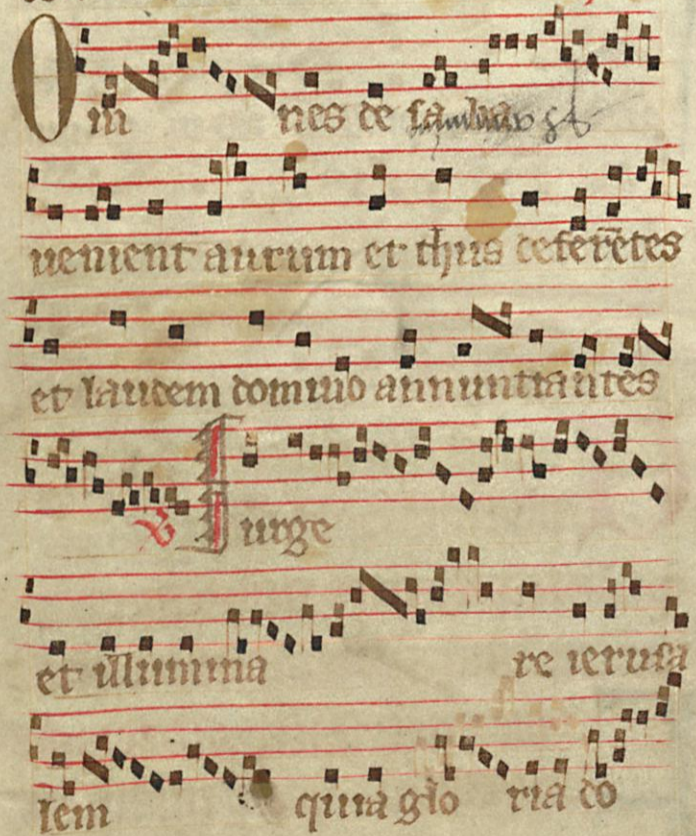 Om nes de saba
uenient aurum et thus deferētes
et laudem domino annuntiantes
V Surge
et illumina re ierusa
lem quia glo ria do